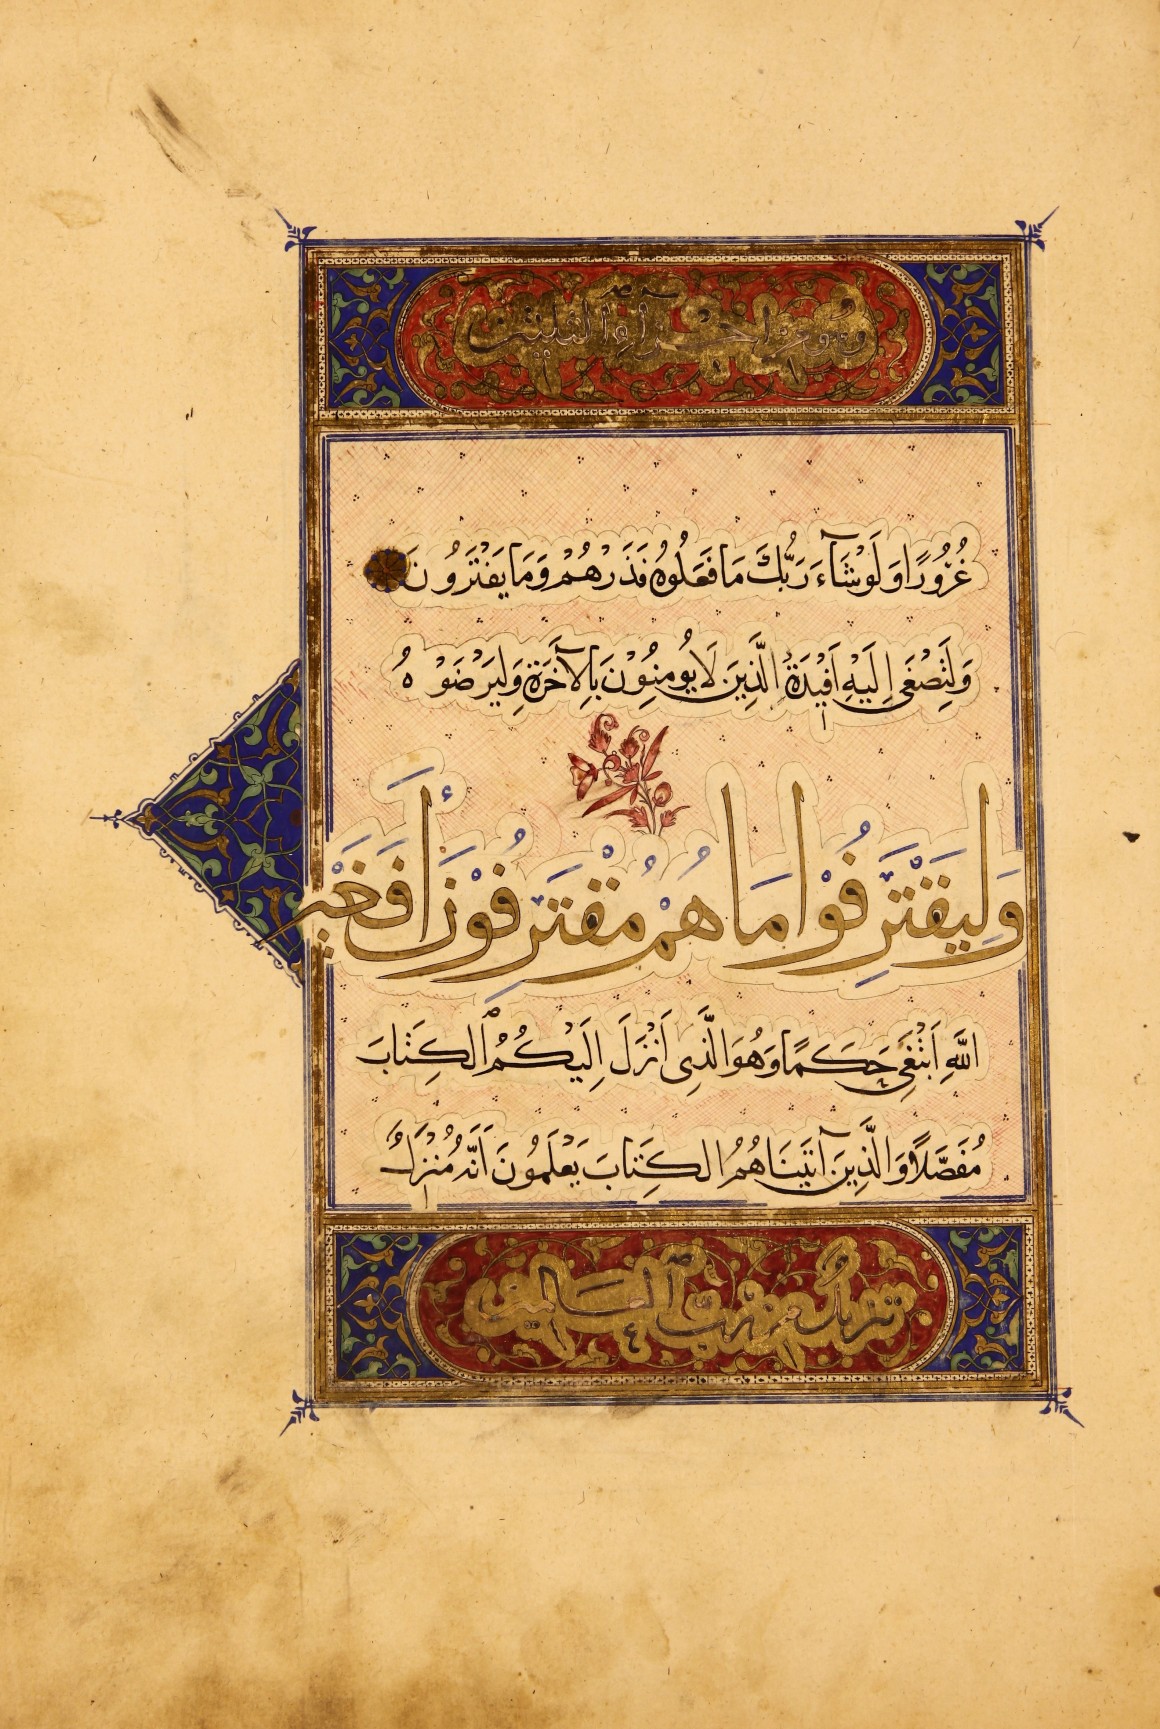 غُرُورًا وَلَوْ شَآءَ رَبُّكَ مَا فَعَلُوهُ فَذَرْهُمْ وَمَا يَفْتَرُونَ
وَلِتَصْغَى إِلَيْهِ أَفْئِدَةُ الَّذِينَ لَا يُومِنُوْنَ بِالْآخِرَةِ وَلِيَرْضَوْهُ
وَلِيَقْتَرِفُوْا مَا هُمْ مُقْتَرِفُوْنَ أَفَغَيْرَ
اللَّهِ أَبْتَغِي حَكَمًا وَهُوَ الَّذِي أَنْزَلَ إِلَيْكُمُ الْكِتَابَ
مُفَصَّلًا وَالَّذِينَ آتَيْنَاهُمُ الكِتَابَ يَعْلَمُونَ أَنَّهُ مُنْزَلٌ